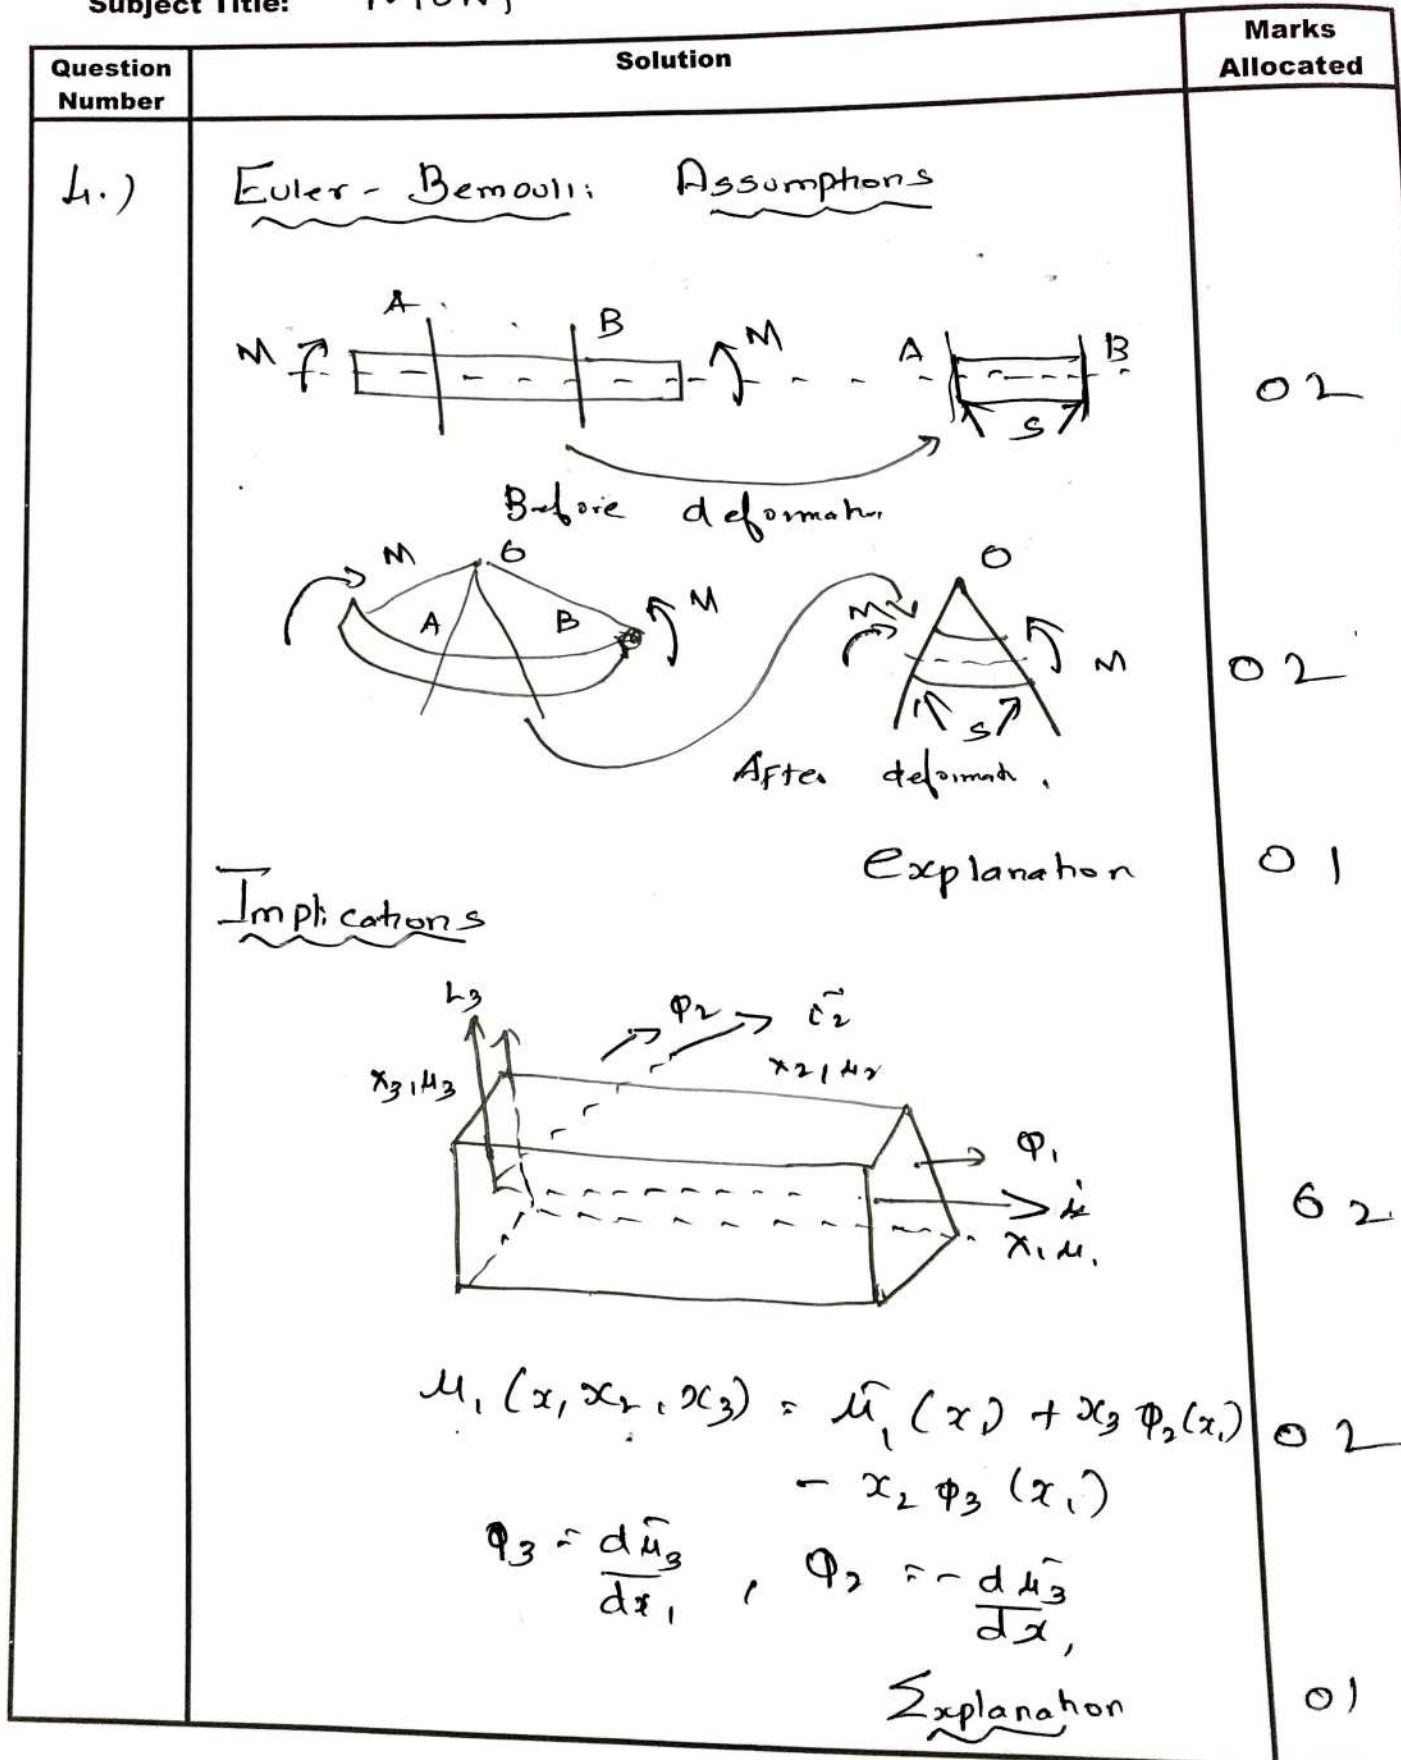 Subject Title:
Question Number
Solution
Marks Allocated
4.)
Euler - Bernoulli Assumptions
A
B
M
M
A
B
S
02
Before deformation
M
O
A
B
M
O
M
M
S
02
After deformat.
Explanation
01
Implications
L3
φ2
ī2
x3, μ3
x2, μ2
φ1
x1 μ1
02
μ1 (x1 x2, x3) = μ̄1 (x1) + x3 φ2(x1)
02
- x2 φ3 (x1)
φ3 = dμ̄3/dx1 , φ2 = - dμ̄3/dx1
Explanation
01